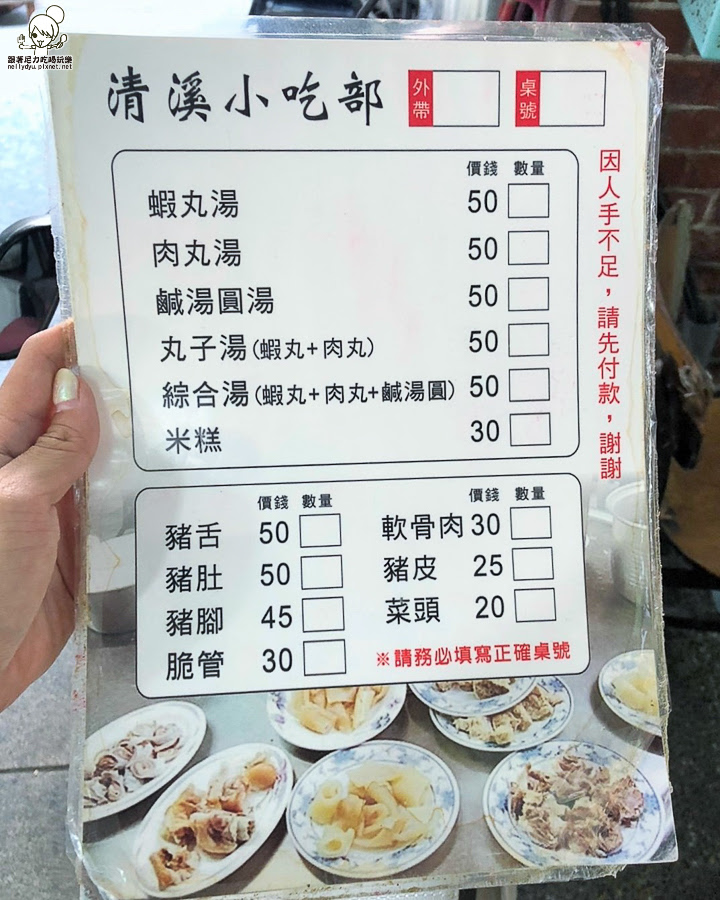 跟著尼力吃喝玩樂
nellydyu.pixnet.net
清溪小吃部
外帶
桌號
價錢 數量
蝦丸湯 50
肉丸湯 50
鹹湯圓湯 50
丸子湯(蝦丸+肉丸) 50
綜合湯(蝦丸+肉丸+鹹湯圓) 50
米糕 30
因人手不足，請先付款，謝謝
價錢 數量 價錢 數量
豬舌 50 軟骨肉 30
豬肚 50 豬皮 25
豬腳 45 菜頭 20
脆管 30 ※請務必填寫正確桌號